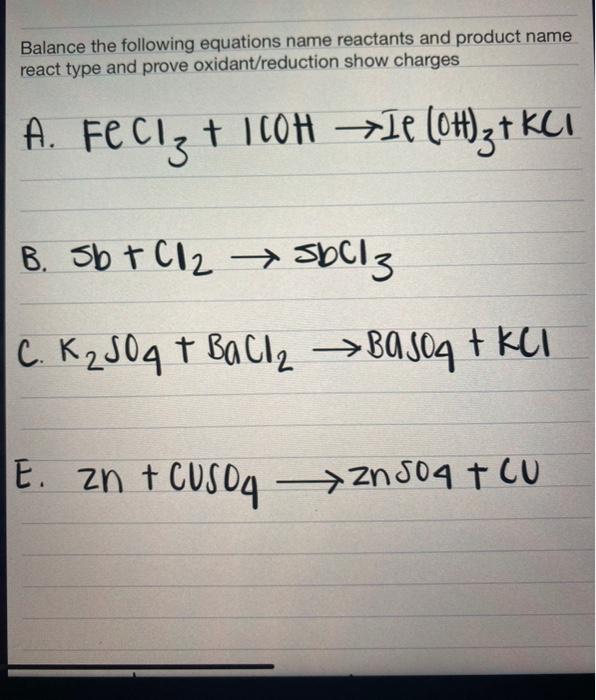 Balance the following equations name reactants and product name
react type and prove oxidant/reduction show charges
A. FeCl3 + KOH → Fe(OH)3 + KCl
B. Sb + Cl2 → SbCl3
C. K2SO4 + BaCl2 → BaSO4 + KCl
E. Zn + CuSO4 → ZnSO4 + Cu